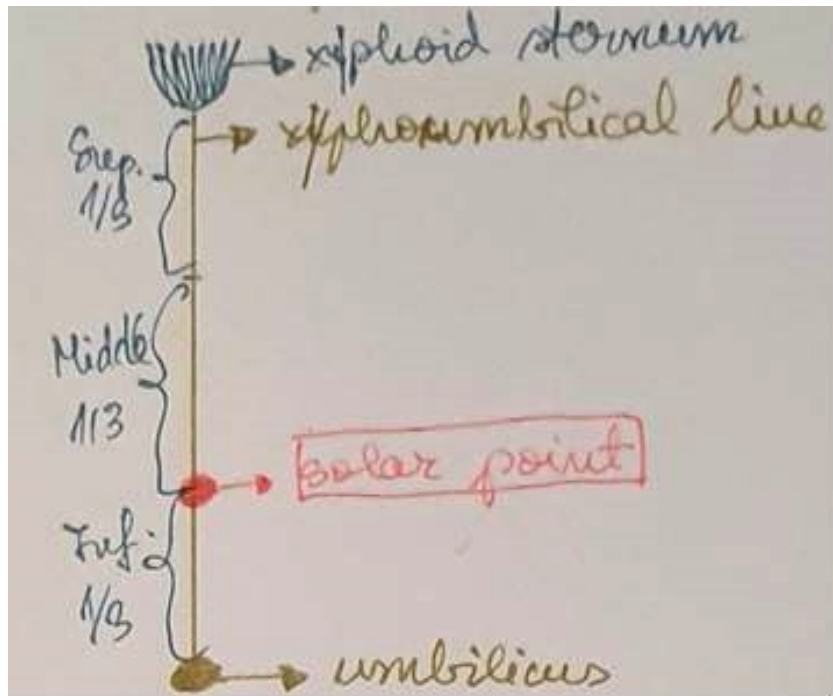 xyphoid sternum
xyphoumbilical line
Sup.
1/3
Middle
1/3
solar point
Inf.
1/3
umbilicus